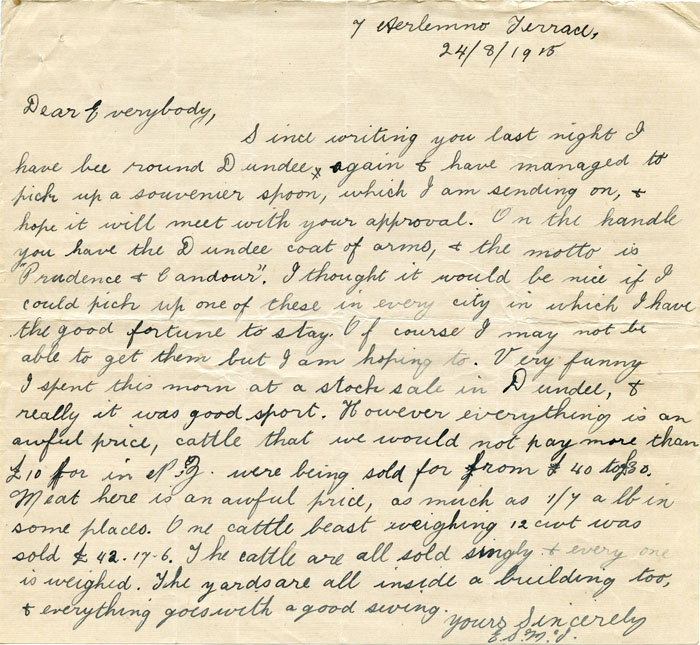 7 Aerlemno Terrace,
24/8/1915
Dear Everybody,
Since writing you last night I
have bee round Dundee, x again & have managed to
pick up a souvenier spoon, which I am sending on, &
hope it will meet with your approval. On the handle
you have the Dundee coat of arms, & the motto is
"Prudence & Candour". I thought it would be nice if I
could pick up one of these in every city in which I have
the good fortune to stay. Of course I may not be
able to get them but I am hoping to. Very funny
I spent this morn at a stock sale in Dundee, &
really it was good sport. However everything is an
awful price, cattle that we would not pay more than
£10 for in N.Z. were being sold for from £40 to £30.
Meat here is an awful price, as much as 1/7 a lb in
some places. One cattle beast weighing 12 cwt was
sold £42-17-6. The cattle are all sold singly & every one
is weighed. The yards are all inside a building too,
& everything goes with a good swing.
Yours Sincerely